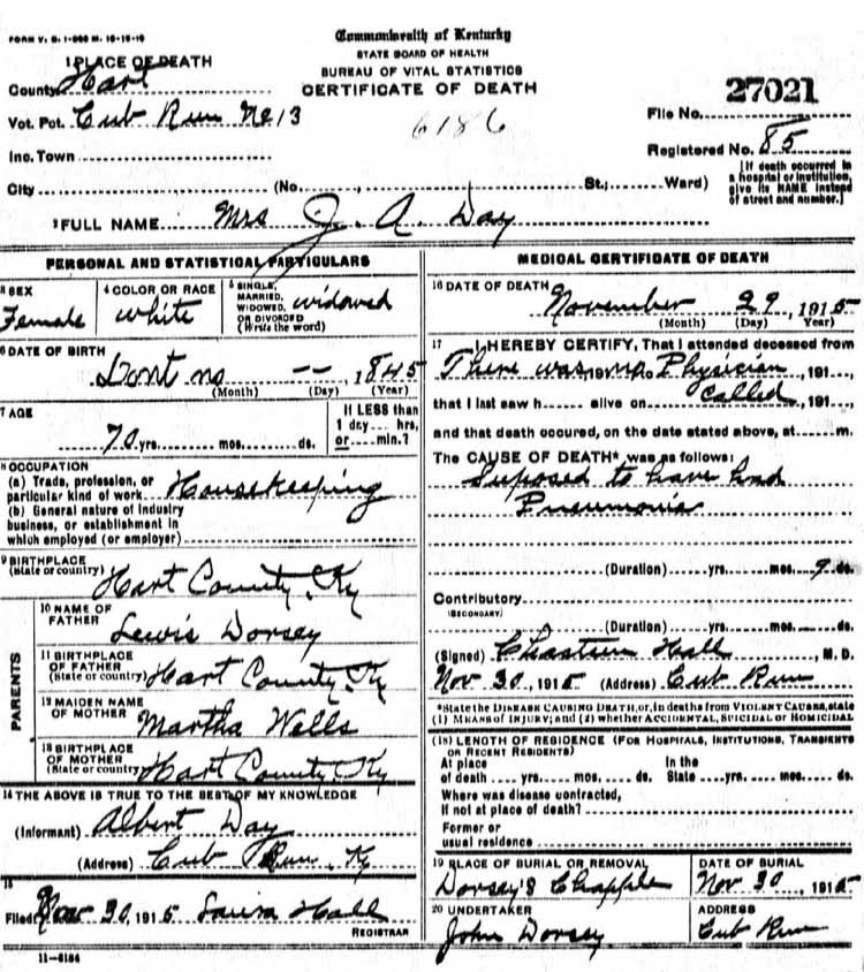 FORM V. S. 1-500 M. 10-15-10
Commonwealth of Kentucky
STATE BOARD OF HEALTH
BUREAU OF VITAL STATISTICS
CERTIFICATE OF DEATH
1 PLACE OF DEATH
County Hart
Vot. Pot. Cub Run No 13
6186
27021
File No.
Inc. Town
Registered No. 85
City (No. , St.; Ward)
[If death occurred in a hospital or institution, give its NAME instead of street and number.]
2 FULL NAME Mrs J. A. Day
PERSONAL AND STATISTICAL PARTICULARS
3 SEX
Female
4 COLOR OR RACE
white
5 SINGLE, MARRIED, WIDOWED, OR DIVORCED (Write the word)
widowed
6 DATE OF BIRTH
Dont no -- , 1845
(Month) (Day) (Year)
7 AGE
70 yrs. mos. ds.
If LESS than 1 day... hrs, or... min.?
8 OCCUPATION
(a) Trade, profession, or particular kind of work Housekeeping
(b) General nature of industry business, or establishment in which employed (or employer)
9 BIRTHPLACE
(State or country) Hart County, Ky
PARENTS
10 NAME OF FATHER
Lewis Dorsey
11 BIRTHPLACE OF FATHER
(State or country) Hart County, Ky
12 MAIDEN NAME OF MOTHER
Martha Wells
13 BIRTHPLACE OF MOTHER
(State or country) Hart County, Ky
14 THE ABOVE IS TRUE TO THE BEST OF MY KNOWLEDGE
(Informant) Albert Day
(Address) Cub Run, Ky
15
Filed Nov 30, 1915 Laura Hall
REGISTRAR
11-6184
MEDICAL CERTIFICATE OF DEATH
16 DATE OF DEATH
November 29, 1915
(Month) (Day) (Year)
17 I HEREBY CERTIFY, That I attended deceased from
There was no Physician , 191
that I last saw h alive on called , 191 ,
and that death occured, on the date stated above, at m.
The CAUSE OF DEATH* was as follows:
Suposed to have had
Pneumonia
(Duration) yrs. mos. 9 ds.
Contributory
(SECONDARY)
(Duration) yrs. mos. ds.
(Signed) Hall, M. D.
Nov 30, 1915 (Address) Cub Run
*State the DISEASE CAUSING DEATH, or, in deaths from VIOLENT CAUSES, state
(1) MEANS of INJURY; and (2) whether ACCIDENTAL, SUICIDAL or HOMICIDAL
(18) LENGTH OF RESIDENCE (FOR HOSPITALS, INSTITUTIONS, TRANSIENTS OR RECENT RESIDENTS)
At place of death yrs. mos. ds. In the State yrs. mos. ds.
Where was disease contracted,
If not at place of death?
Former or
usual residence
19 PLACE OF BURIAL OR REMOVAL
Dorsey's Chapple
DATE OF BURIAL
Nov 30, 1915
20 UNDERTAKER
John Dorsey
ADDRESS
Cub Run